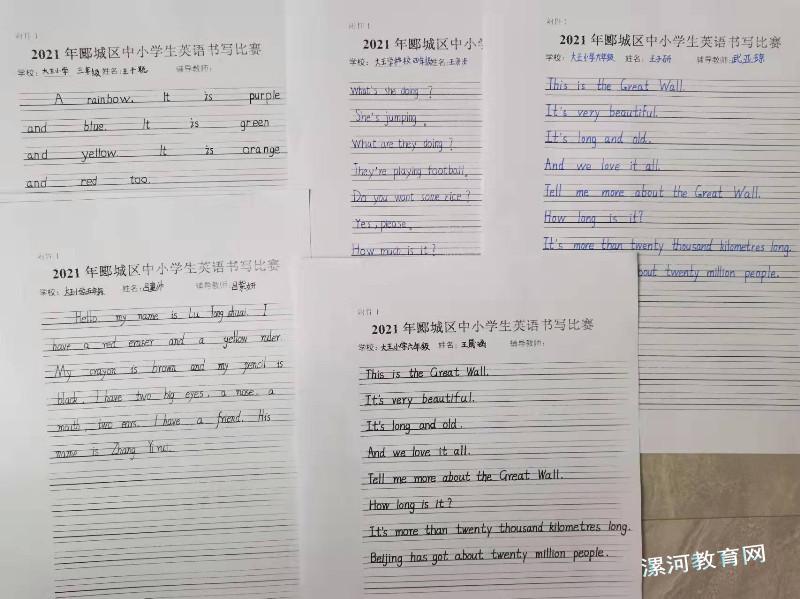 附件 1
2021 年郾城区中小学生英语书写比赛
学校: 大王小学 三年级 姓名: 王子聪 辅导教师:
A rainbow. It is purple
and blue. It is green
and yellow. It is orange
and red too.
附件 1
2021 年郾城区中小学
学校: 大王小学 四年级 姓名:
What's she doing?
She's jumping.
What are they doing?
They're playing football.
Do you want some rice?
Yes, please.
How much is it?
附件 1
2021 年郾城区中小学生英语书写比赛
学校: 大王小学六年级 姓名: 王子研 辅导教师: 武亚锦
This is the Great Wall.
It's very beautiful.
It's long and old.
And we love it all.
Tell me more about the Great Wall.
How long is it?
It's more than twenty thousand kilometres long.
bout twenty million people.
附件 1
2021 年郾城区中小学生英语书写比赛
学校: 大王小学五年级 姓名: 辅导教师:
Hello my name is Lu Tong shuai. I
have a red eraser and a yellow ruler.
My crayon is brown and my pencil is
black. I have two big eyes, a nose, a
mouth, two ears. I have a friend. His
name is Zhang Yi
附件 1
2021 年郾城区中小学生英语书写比赛
学校: 大王小学六年级 姓名: 王 涵 辅导教师:
This is the Great Wall.
It's very beautiful.
It's long and old.
And we love it all.
Tell me more about the Great Wall.
How long is it?
It's more than twenty thousand kilometres long.
Beijing has got about twenty million people.
漯河教育网